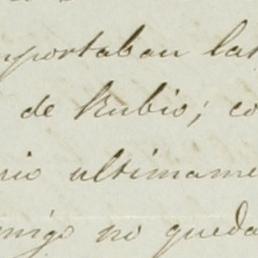 mportaban las
de Rubio; co
rio ultimame
migo no queda